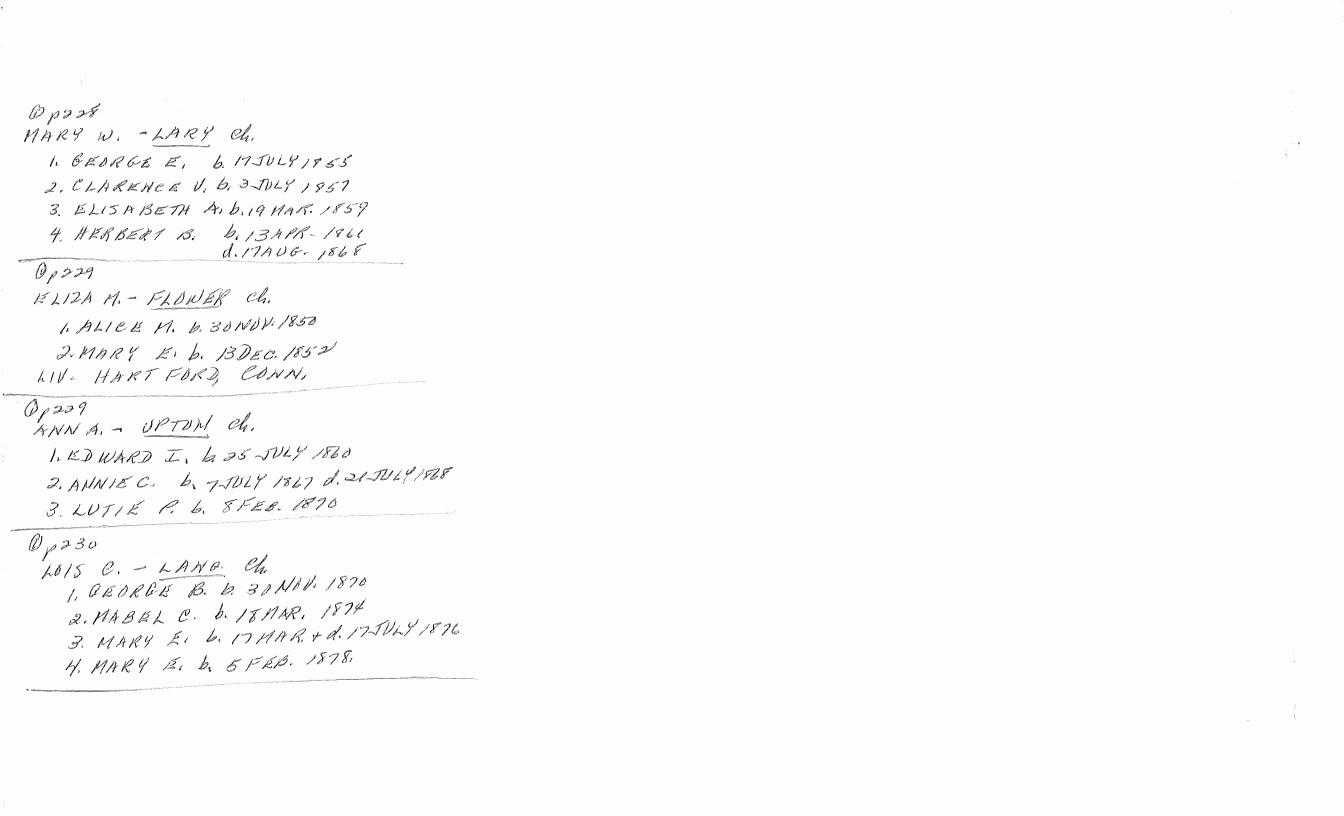 ① p228
MARY W. - LARY ch.
1. GEORGE E. b. 17 JULY 1855
2. CLARENCE V. b. 3 JULY 1857
3. ELISABETH A. b. 19 MAR. 1859
4. HERBERT B. b. 13 APR- 1861
d. 17 AUG- 1868
① p229
ELIZA M. - FLOWER ch.
1. ALICE M. b. 30 NOV. 1850
2. MARY E. b. 13 DEC. 1852
LIV- HARTFORD, CONN.
① p229
ANN A. - UPTON ch.
1. EDWARD I. b 25 JULY 1860
2. ANNIE C. b. 7 JULY 1867 d. 21 JULY 1868
3. LUTIE P. b. 8 FEB. 1870
① p230
LOIS C. - LANG. ch
1. GEORGE B. b. 30 NOV. 1870
2. MABEL C. b. 18 MAR. 1874
3. MARY E. b. 17 MAR. + d. 17 JULY 1876
4. MARY E. b. 5 FEB. 1878.